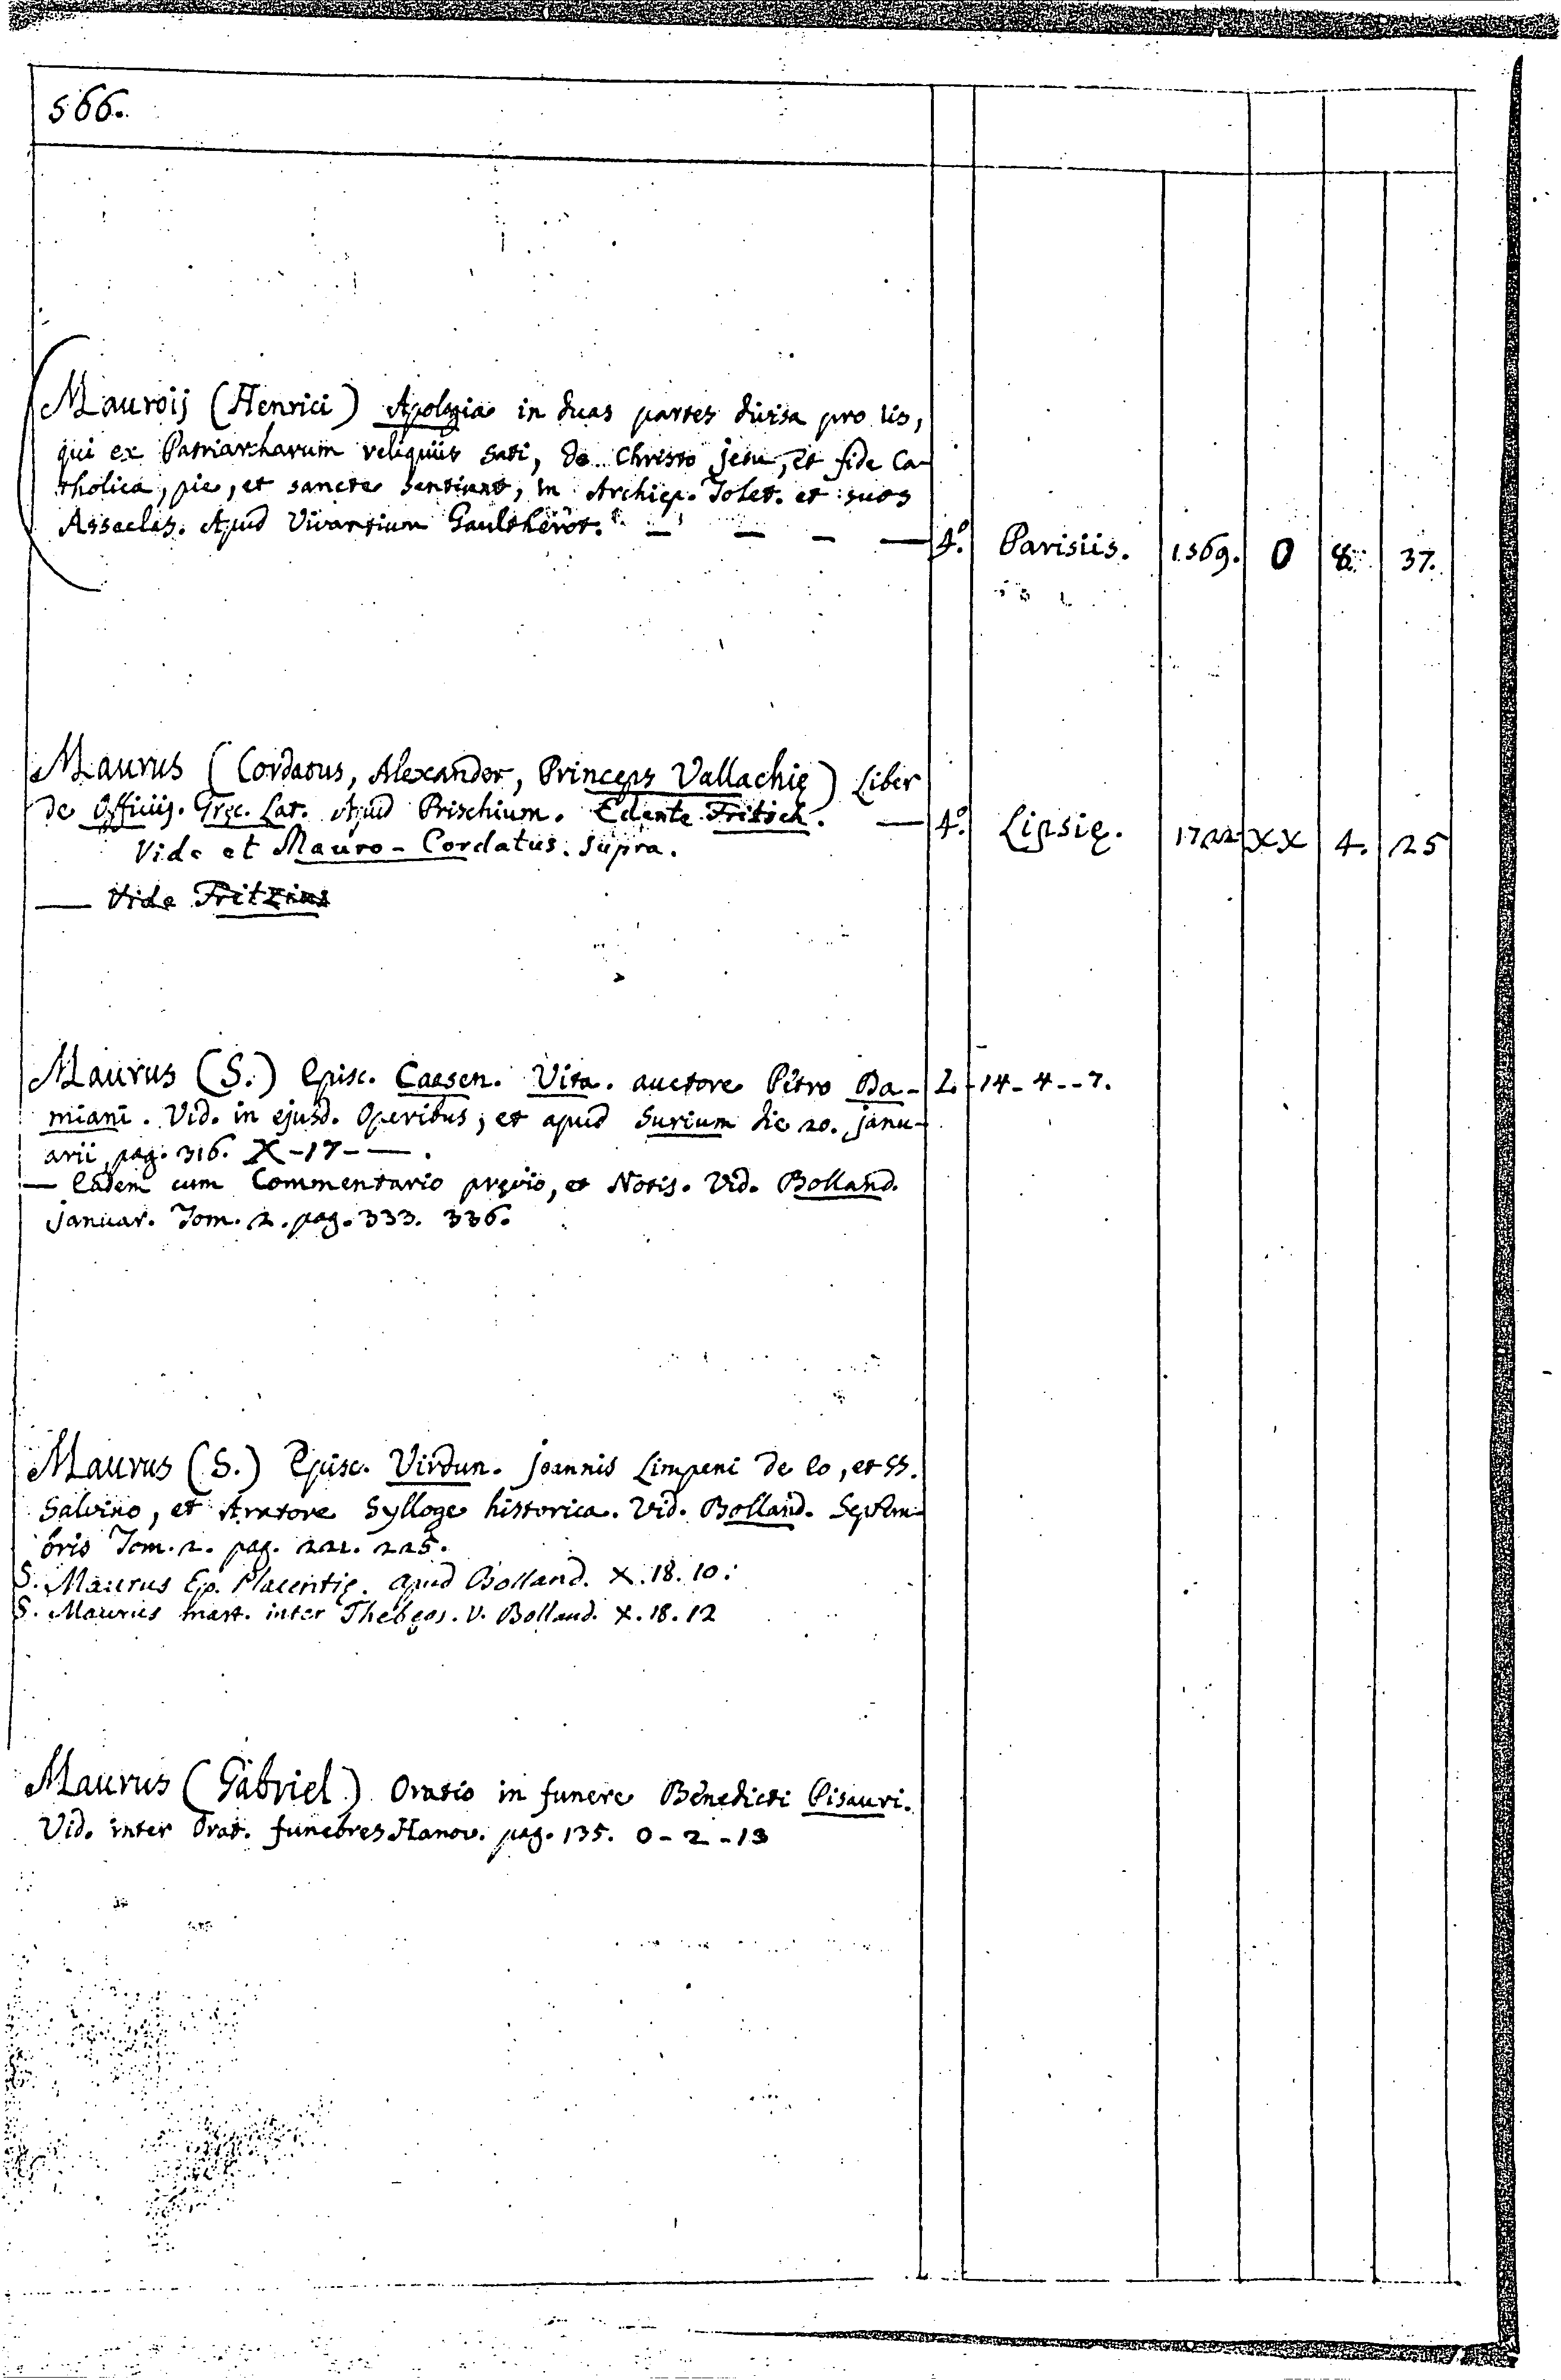 566.
Mauroij (Henrici) Apologia in duas partes divisa pro iis,
qui ex Patriarcharum reliquiis sati, de Christo jesu, et fide Ca-
tholica, pie, et sancte sentiunt, in Archiep. Tolet. et suos
Asseclas. Apud Vivantium Gaultherot. — — — — 4.º Parisiis. 1569. O 8. 37.
Maurus (Cordatus, Alexander, Princeps Vallachię) Liber
de Officiis. Gręc. Lat. Apud Prischium. Edente Fritsch. — 4.º Lipsię. 1722 XX 4. 25
Vide et Mauro-Cordatus. supra.
— Vide
Maurus (S.) Episc. Caesen. Vita. auctore Petro Da- L. - 14 - 4 - - 7.
miani. Vid. in ejusd. Operibus, et apud Surium die 20. janu-
arii, pag. 316. X - 17 - — .
— Eadem cum Commentario pręvio, et Notis. Vid. Bolland.
januar. Tom. 2. pag. 333. 336.
Maurus (S.) Episc. Virdun. joannis Limpeni de eo, et SS.
Salvino, et Aratore Sylloge historica. Vid. Bolland. Septem-
bris Tom. 2. pag. 221. 225.
S. Maurus Ep. Placentię. apud Bolland. X. 18. 10.
S. Maurus mart. inter Thebęos. V. Bolland. X. 18. 12
Maurus (Gabriel) Oratio in funere Benedicti Pisauri.
Vid. inter Orat. funebres Hanov. pag. 135. O - 2 - 13